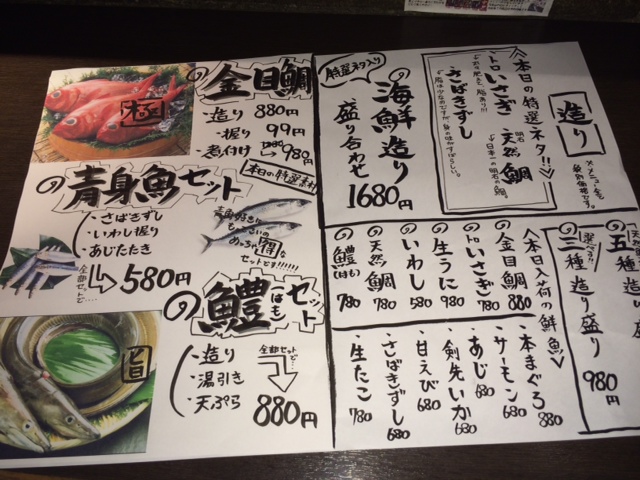 極
の金目鯛
・造り 880円
・握り 99円
・煮付け 980円
の青身魚セット
本日の特選素材
・さばきずし
・いわし握り
・あじたたき
全部セットで…
580円
青魚好きには
もってこいの
めっちゃ得な
セットです!!!!!!
の鱧セット
はも
旨
・造り
・湯引き
・天ぷら
全部セットで…
880円
造り
<本日の特選ネタ!!>
・トロいさぎ
・明石天然鯛
・さばきずし
特選ネタ入り
の海鮮造り
盛り合わせ
1680円
三種造り盛り
980円
<本日入荷の鮮魚>
・金目鯛 880
・トロいさぎ 780
・生うに 980
・いわし 580
・天然鯛 780
・鱧(はも) 780
・本まぐろ 880
・サーモン 680
・あじ 680
・剣先いか 680
・甘えび 680
・さばきずし 680
・生たこ 780